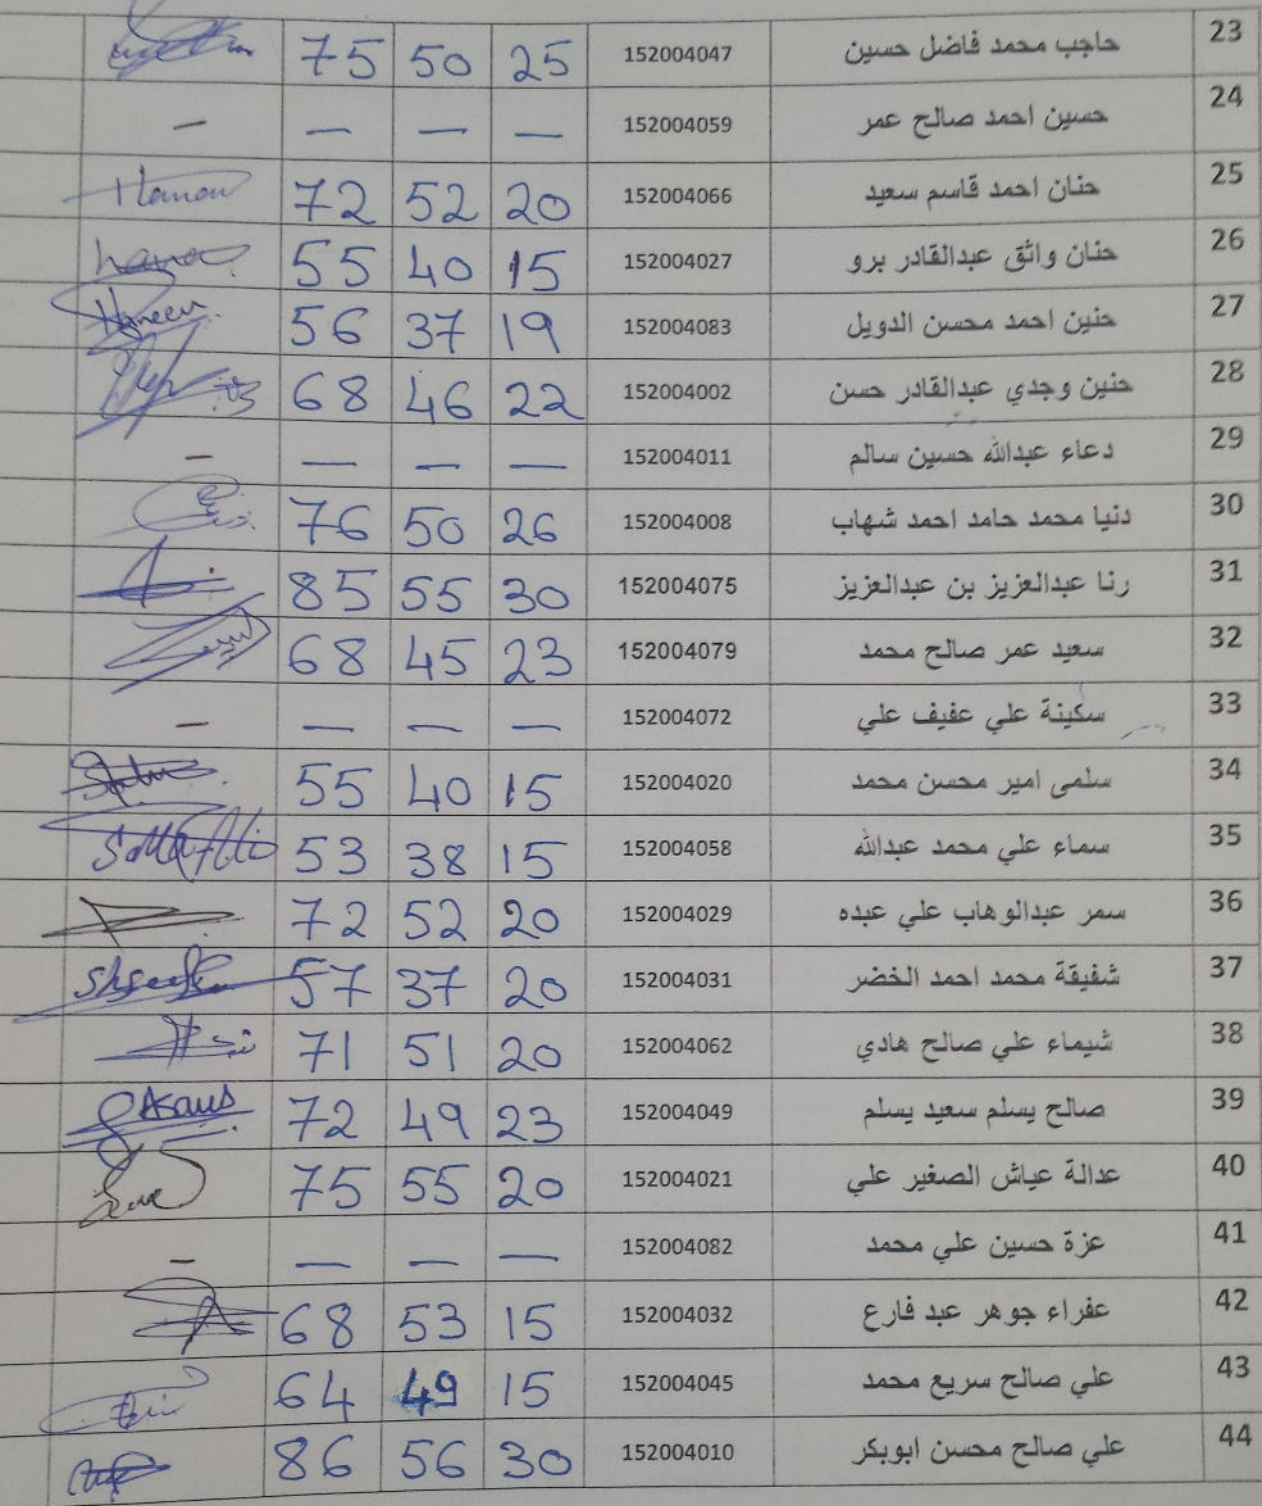 23 حاجب محمد فاضل حسين 152004047 25 50 75
24 حسين احمد صالح عمر 152004059 — — — —
25 حنان احمد قاسم سعيد 152004066 20 52 72 Hanan
26 حنان واثق عبدالقادر برو 152004027 15 40 55
27 حنين احمد محسن الدويل 152004083 19 37 56 Haneen
28 حنين وجدي عبدالقادر حسن 152004002 22 46 68
29 دعاء عبدالله حسين سالم 152004011 — — — —
30 دنيا محمد حامد احمد شهاب 152004008 26 50 76
31 رنا عبدالعزيز بن عبدالعزيز 152004075 30 55 85
32 سعيد عمر صالح محمد 152004079 23 45 68
33 سكينة علي عفيف علي 152004072 — — — —
34 سلمى امير محسن محمد 152004020 15 40 55
35 سماء علي محمد عبدالله 152004058 15 38 53
36 سمر عبدالوهاب علي عبده 152004029 20 52 72
37 شفيقة محمد احمد الخضر 152004031 20 37 57
38 شيماء علي صالح هادي 152004062 20 51 71
39 صالح يسلم سعيد يسلم 152004049 23 49 72
40 عدالة عياش الصغير علي 152004021 20 55 75
41 عزة حسين علي محمد 152004082 — — — —
42 عفراء جوهر عبد فارع 152004032 15 53 68
43 علي صالح سريع محمد 152004045 15 49 64
44 علي صالح محسن ابوبكر 152004010 30 56 86